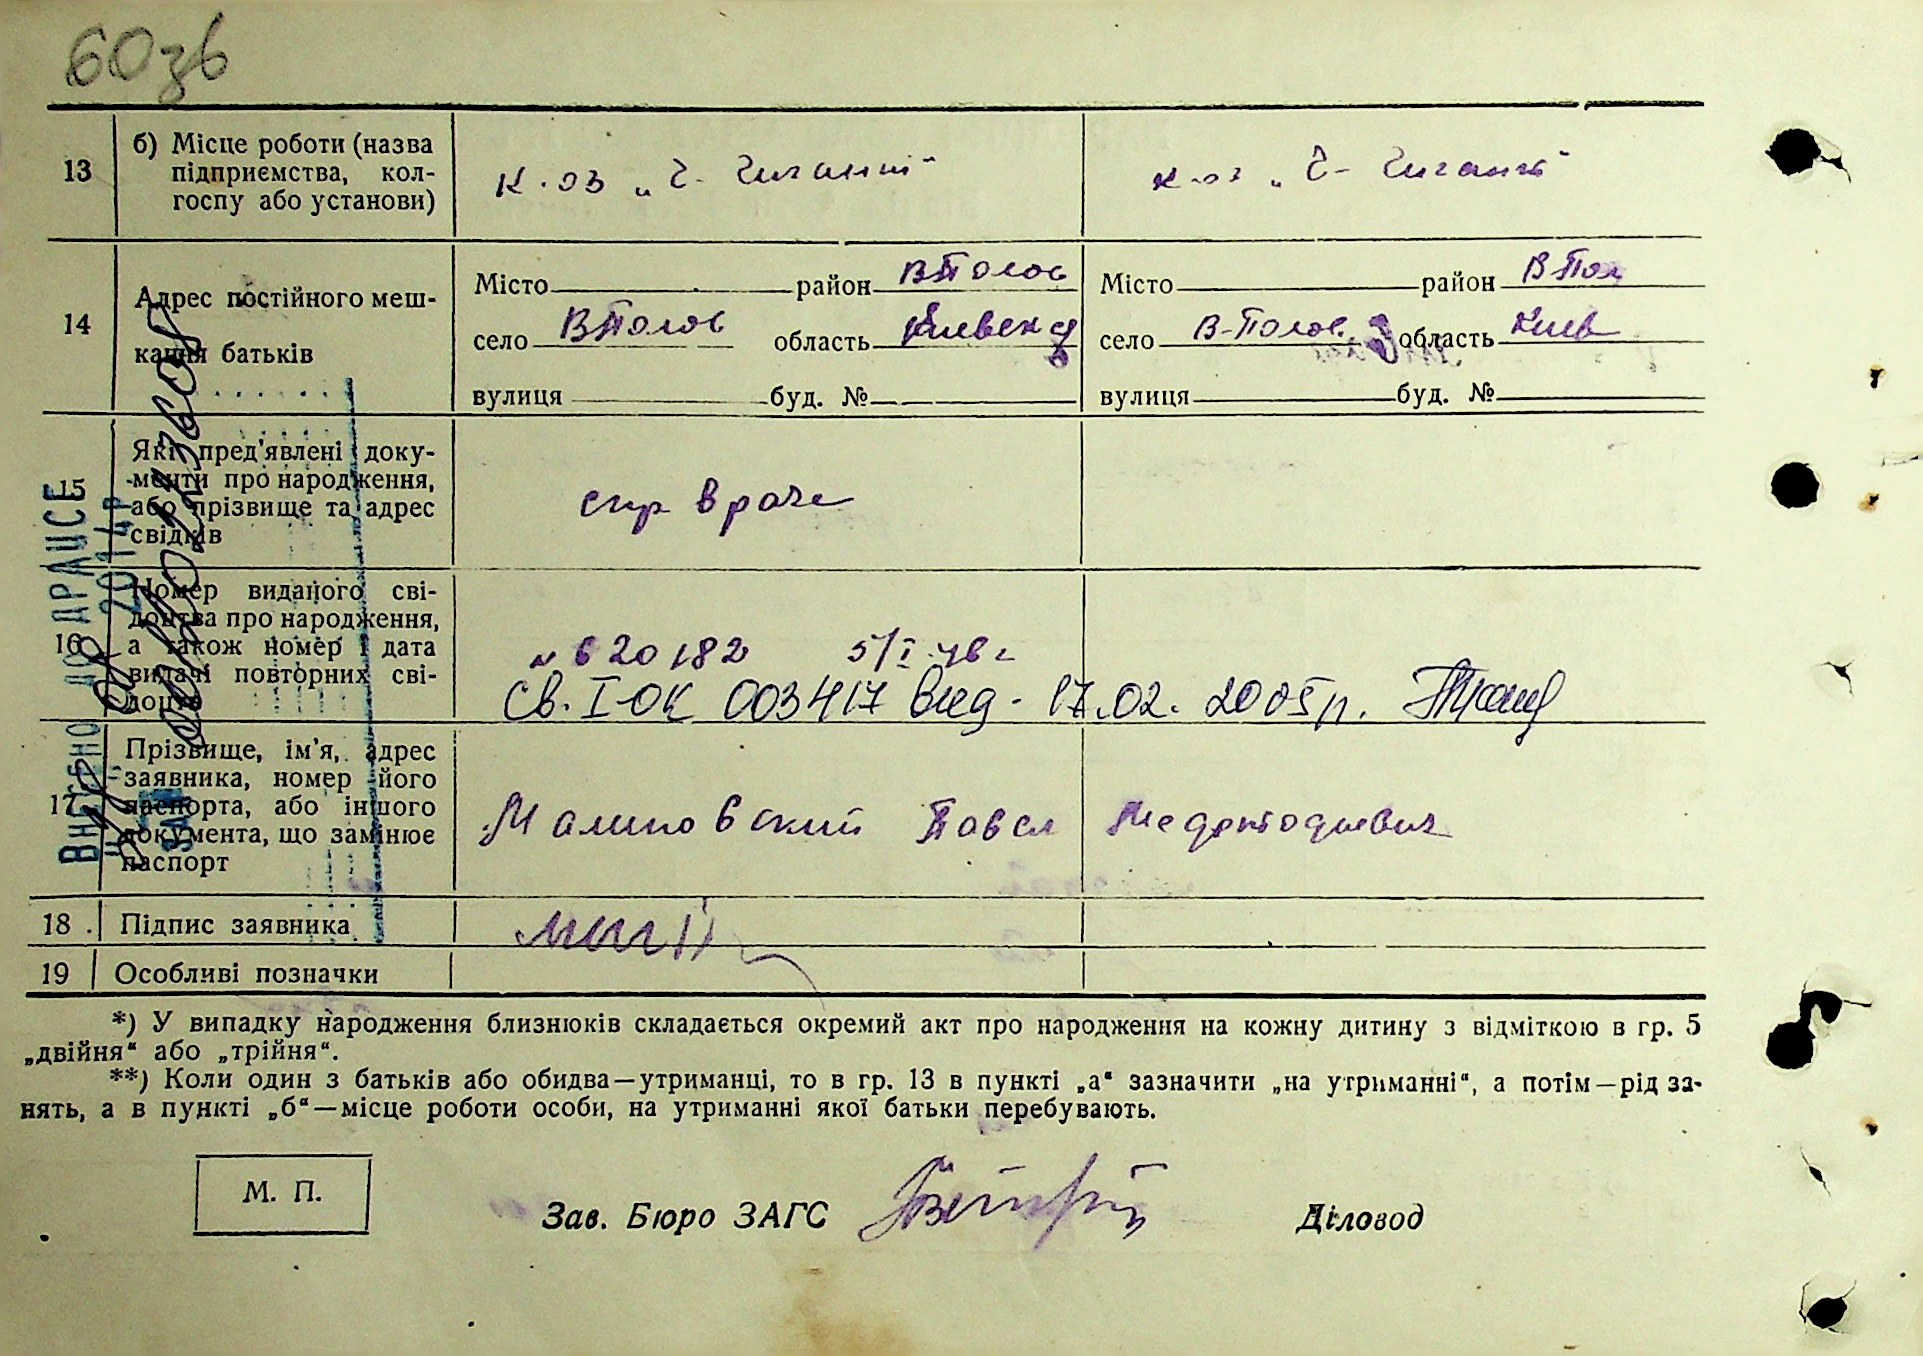 60зв
13 б) Місце роботи (назва
підприємства, кол-
госпу або установи)
к-оз „Ч-
к-оз „Ч-
14 Адрес постійного меш-
кання батьків
Місто район ВПолов
село ВПолов область
вулиця буд. №
Місто район ВПол
село В-Полов. область Киев
вулиця буд. №
15 Які пред'явлені доку-
менти про народження,
або прізвище та адрес
свідків
спр врача
16 Номер виданого сві-
доцтва про народження,
а також номер і дата
видачі повторних сві-
доцтв
№ 620182 5/I 46 г
Св. І-ОК 003417 вид. 17.02.2005 р.
17 Прізвище, ім'я, адрес
заявника, номер його
паспорта, або іншого
документа, що замінює
паспорт
Малиновский Павел
18 Підпис заявника
19 Особливі позначки
*) У випадку народження близнюків складається окремий акт про народження на кожну дитину з відміткою в гр. 5
„двійня“ або „трійня“.
**) Коли один з батьків або обидва—утриманці, то в гр. 13 в пункті „а“ зазначити „на утриманні“, а потім—рід за-
нять, а в пункті „б“—місце роботи особи, на утриманні якої батьки перебувають.
М. П.
Зав. Бюро ЗАГС Діловод
ВНЕСЕНО ДО ДРАЦСЕ
201 р